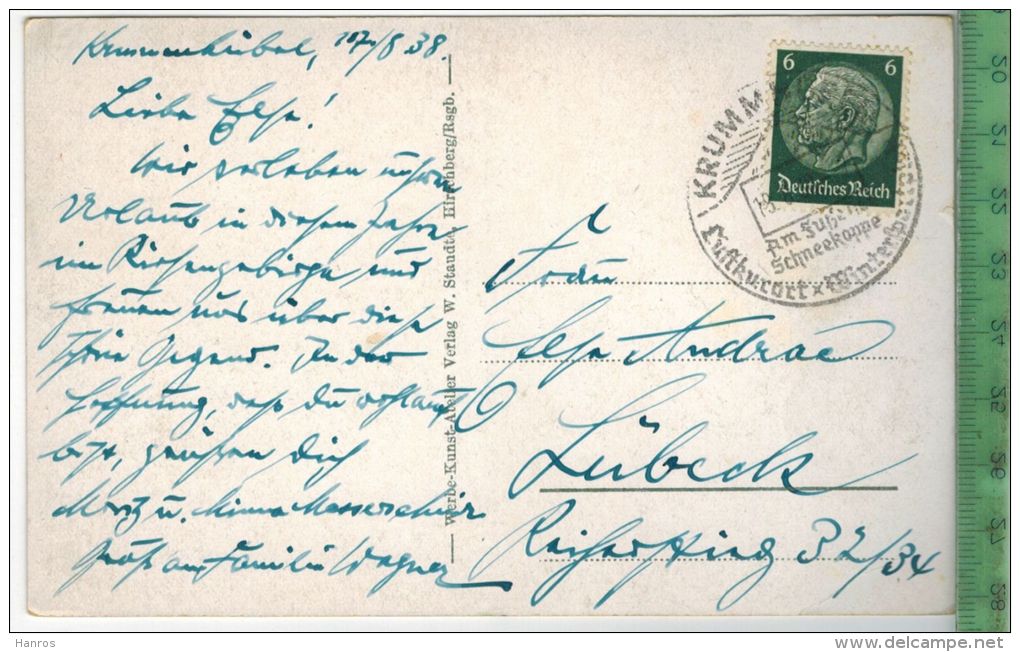 Krummhübel, /8 38.
Liebe Else!
Wir verleben unseren
Urlaub in diesem Jahre
im Riesengebirge und
freuen uns über diese
schöne Gegend. In der
Hoffnung, daß du wohlauf
bist, grüßen dich
u.
Gruß an Familie Wagner
Werbe-Kunst-Atelier Verlag W. Staudte, Hirschberg/Rsgb.
6 6
Deutsches Reich
KRUMM
Am Fuße
Schneekoppe
Luftkurort Wintersp
Frau
Else Andrae
Lübeck
32/34
Hanros
www.delcampe.net